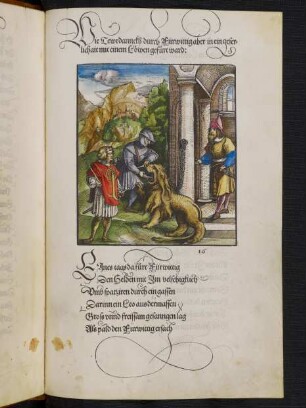 Wie Tewrdannckh durch Fürwittig aber in ein geferlichait mit einem Löwen gefürt ward:
16
Eines tags da fürt Fürwittig
Den Helden mit Im
Umb spatziren durch ein gassen
Darinn ein Leo aus dermassen
Groß vnnd freissam gefanngen lag
Als pald den Fürwittig ersach